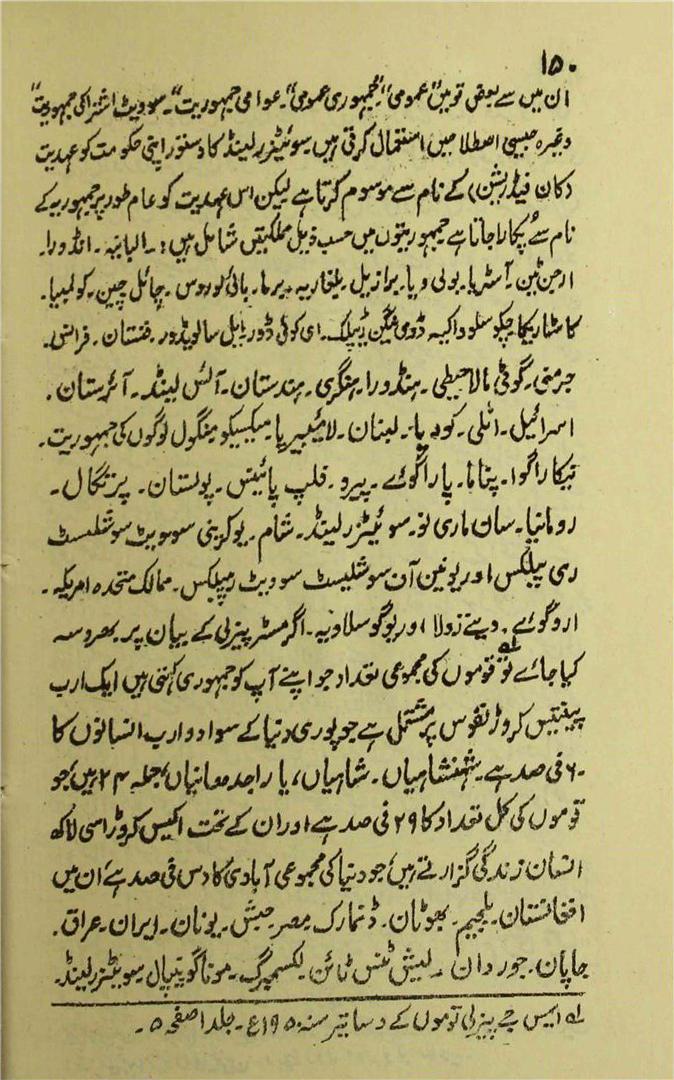 ۱۵۰
ان میں سے بعض قومیں "عمومی" "جمہوری عمومی"۔ عوامی جمہوریت"۔ سوویٹ اشتراکی جمہوریت"
وغیرہ جیسی اصطلاحیں استعمال کرتی ہیں سوئیٹزرلینڈ کا دستور اپنی حکومت کو عہدیت
(کان فیڈریشن) کے نام سے موسوم کرتا ہے لیکن اس عہدیت کو عام طور پر جمہوریہ کے
نام سے پکارا جاتا ہے جمہوریتوں میں حسب ذیل مملکتیں شامل ہیں:۔ البانیہ۔ انڈورا۔
ارجن ٹین۔ آسٹریا۔ بولی ویا۔ برازیل۔ بلغاریہ۔ برما۔ بائی لوروس۔ چائل چین۔ کولمبیا۔
کاسٹاریکا چکوسلوواکیہ ڈومی نیکن ری پبلک۔ ای کوئی ڈور یا ایل سالویڈور۔ فنستان۔ فرانس۔
جرمنی۔ گوئی ٹمالا حیطی۔ ہنڈورا۔ ہنگری۔ ہندستان۔ آئس لینڈ۔ آئرستان۔
اسرائیل۔ اٹلی۔ کوریا۔ لبنان۔ لائبیریا۔ میکسیکو منگول لوگوں کی جمہوریت۔
نیکاراگوا۔ پناما۔ پاراگوئے۔ پیرو۔ فلپ پائینس۔ پولستان۔ پرتگال۔
رومانیا۔ سان ماری نو۔ سوئیٹزرلینڈ۔ شام۔ یوکرینی سوویٹ سوشلسٹ
ری پبلکس اور یونین آف سوشلیسٹ سوویٹ ریپبلکس۔ ممالک متحدہ امریکہ۔
اروگوئے۔ وینے زولا، اور یوگوسلاویہ۔ اگر مسٹر پیزلی کے بیان پر بھروسہ
کیا جائے لہ تو قوموں کی مجموعی تعداد جو اپنے آپ کو جمہوری کہتی ہیں ایک ارب
پینتیس کروڑ نفوس پر مشتمل ہے جو پوری دنیا کے سوا دو ارب انسانوں کا
۶۰ فی صد ہے۔ شہنشاہیاں۔ شاہیاں، یا راجدھانیاں، جملہ ۲۴ ہیں، جو
قوموں کی کل تعداد کا ۲۹ فی صد ہے اور ان کے تحت اکیس کروڑ اسی لاکھ
انسان زندگی گزارتے ہیں، جو دنیا کی مجموعی آبادی کا دس فی صد ہے، ان میں
افغانستان۔ بلجیم۔ بھوٹان۔ ڈنمارک۔ مصر۔ حبش۔ یونان۔ ایران۔ عراق۔
جاپان۔ جوردان۔ لیش ٹنس ٹائن۔ لکسمبرگ۔ موناکو نیپال سوئیٹزرلینڈ۔
لہ ایس جے پیزلی قوموں کے دساتیر سنہ ۱۹۵۰ع۔ جلد ا صفحہ ۵۔